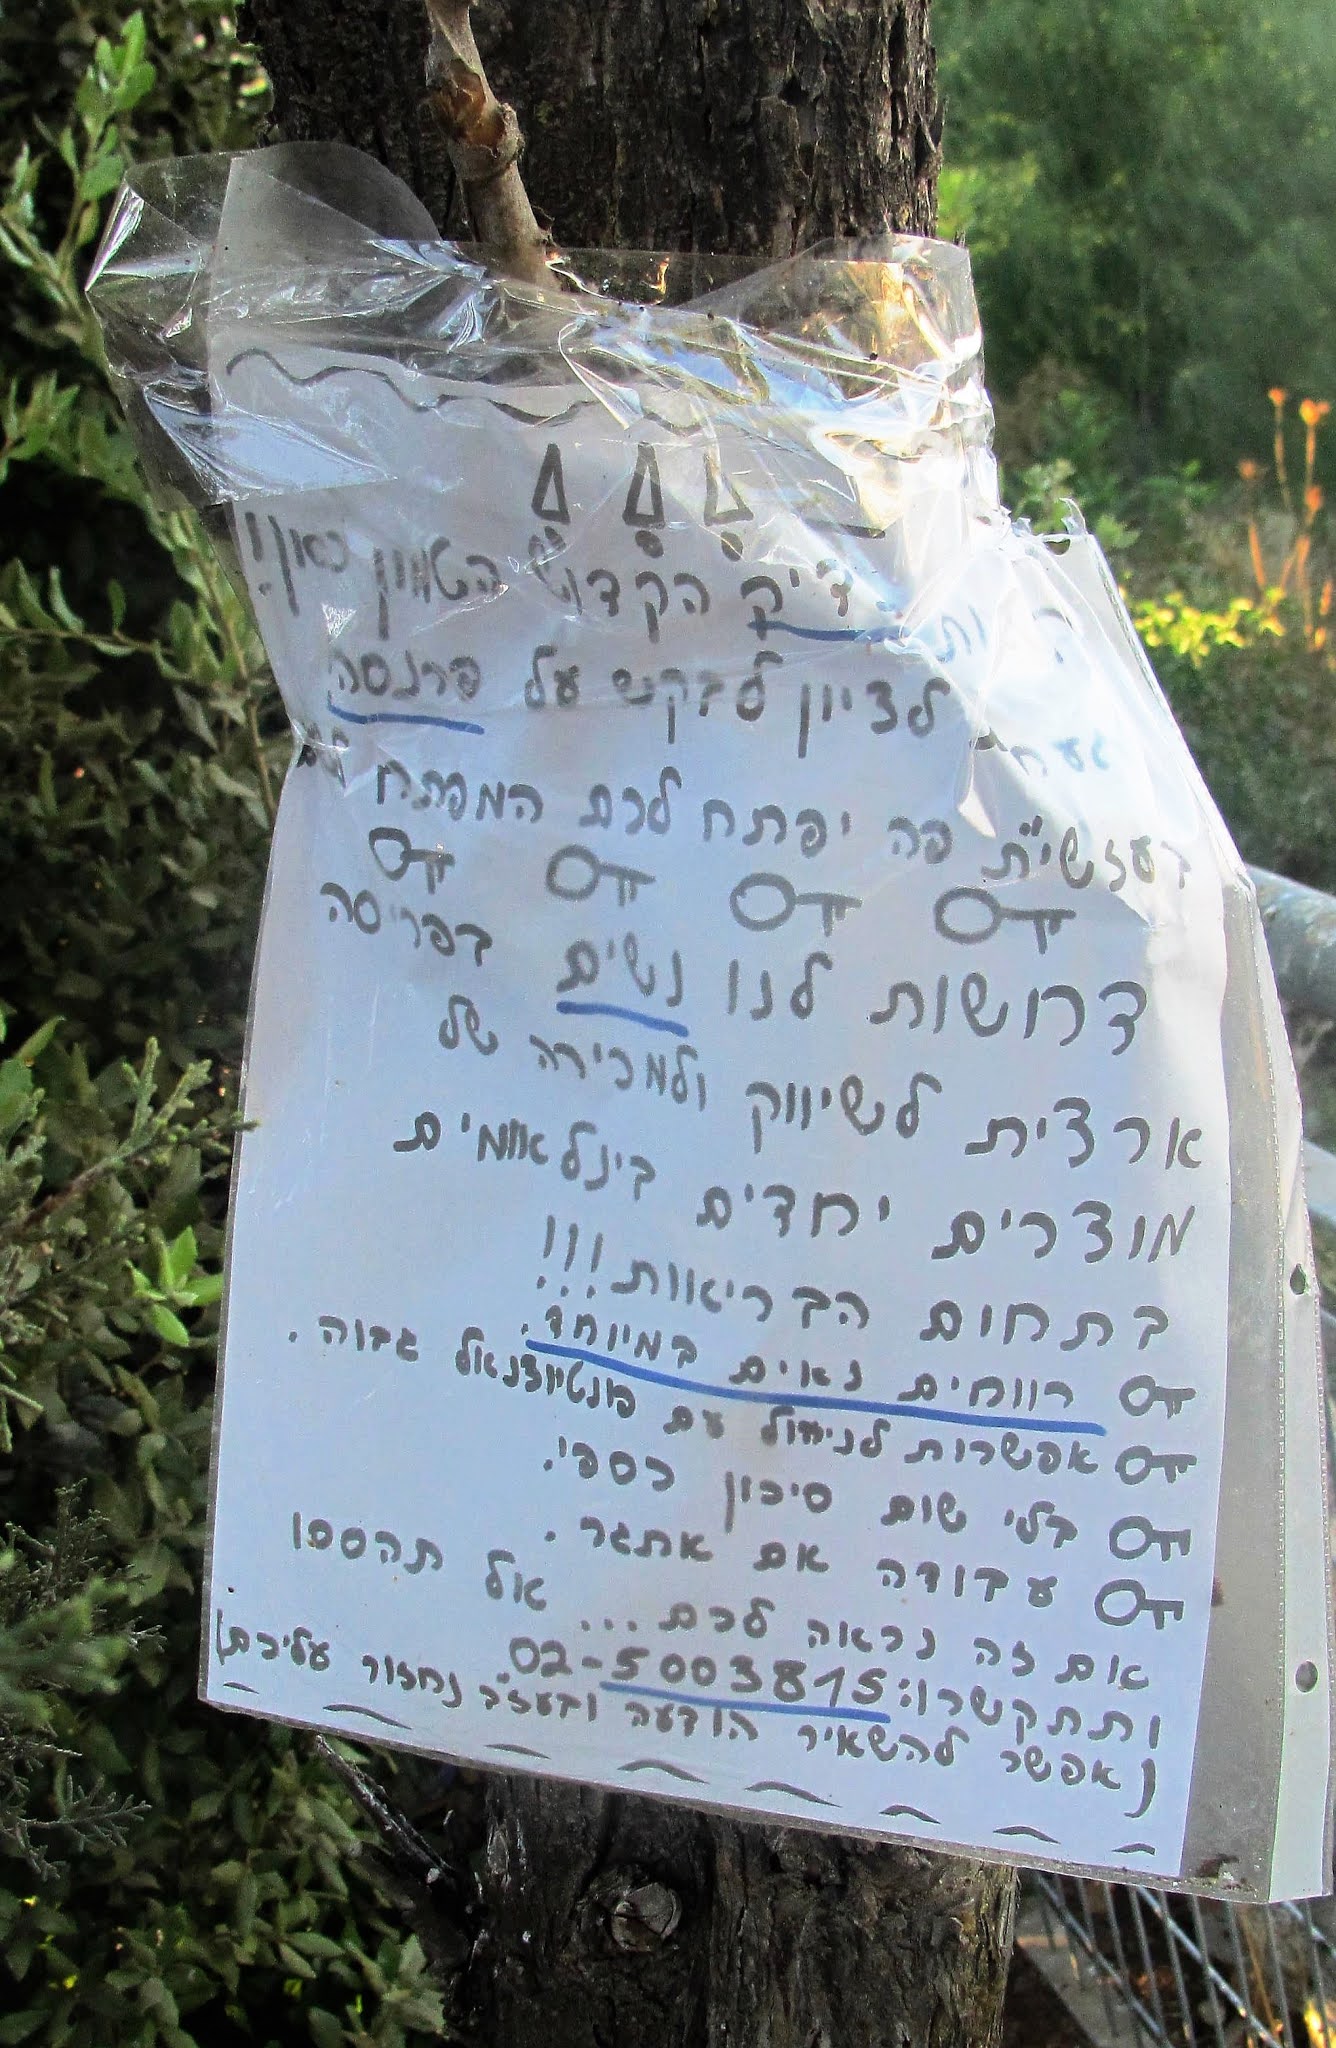 הקדוש הטמון כאן!
לציון לבקש על פרנסה
בעזשי"ת פה יפתח לכם המפתח
דרושות לנו נשים בפריסה
ארצית לשיווק ולמכירה של
מוצרים יחדים בינלאומיים
בתחום הבריאות!!!
רווחים נאים במיוחד.
אפשרות לניהול עם פונטיוצנאל גבוה.
בלי שום סיכון כספי.
עבודה אם אתגר.
אם זה נראה לכם... אל תהססו
ותתקשרו: 02-5003815.
(אפשר להשאיר הודעה ובעז"ה נחזור עליכם)